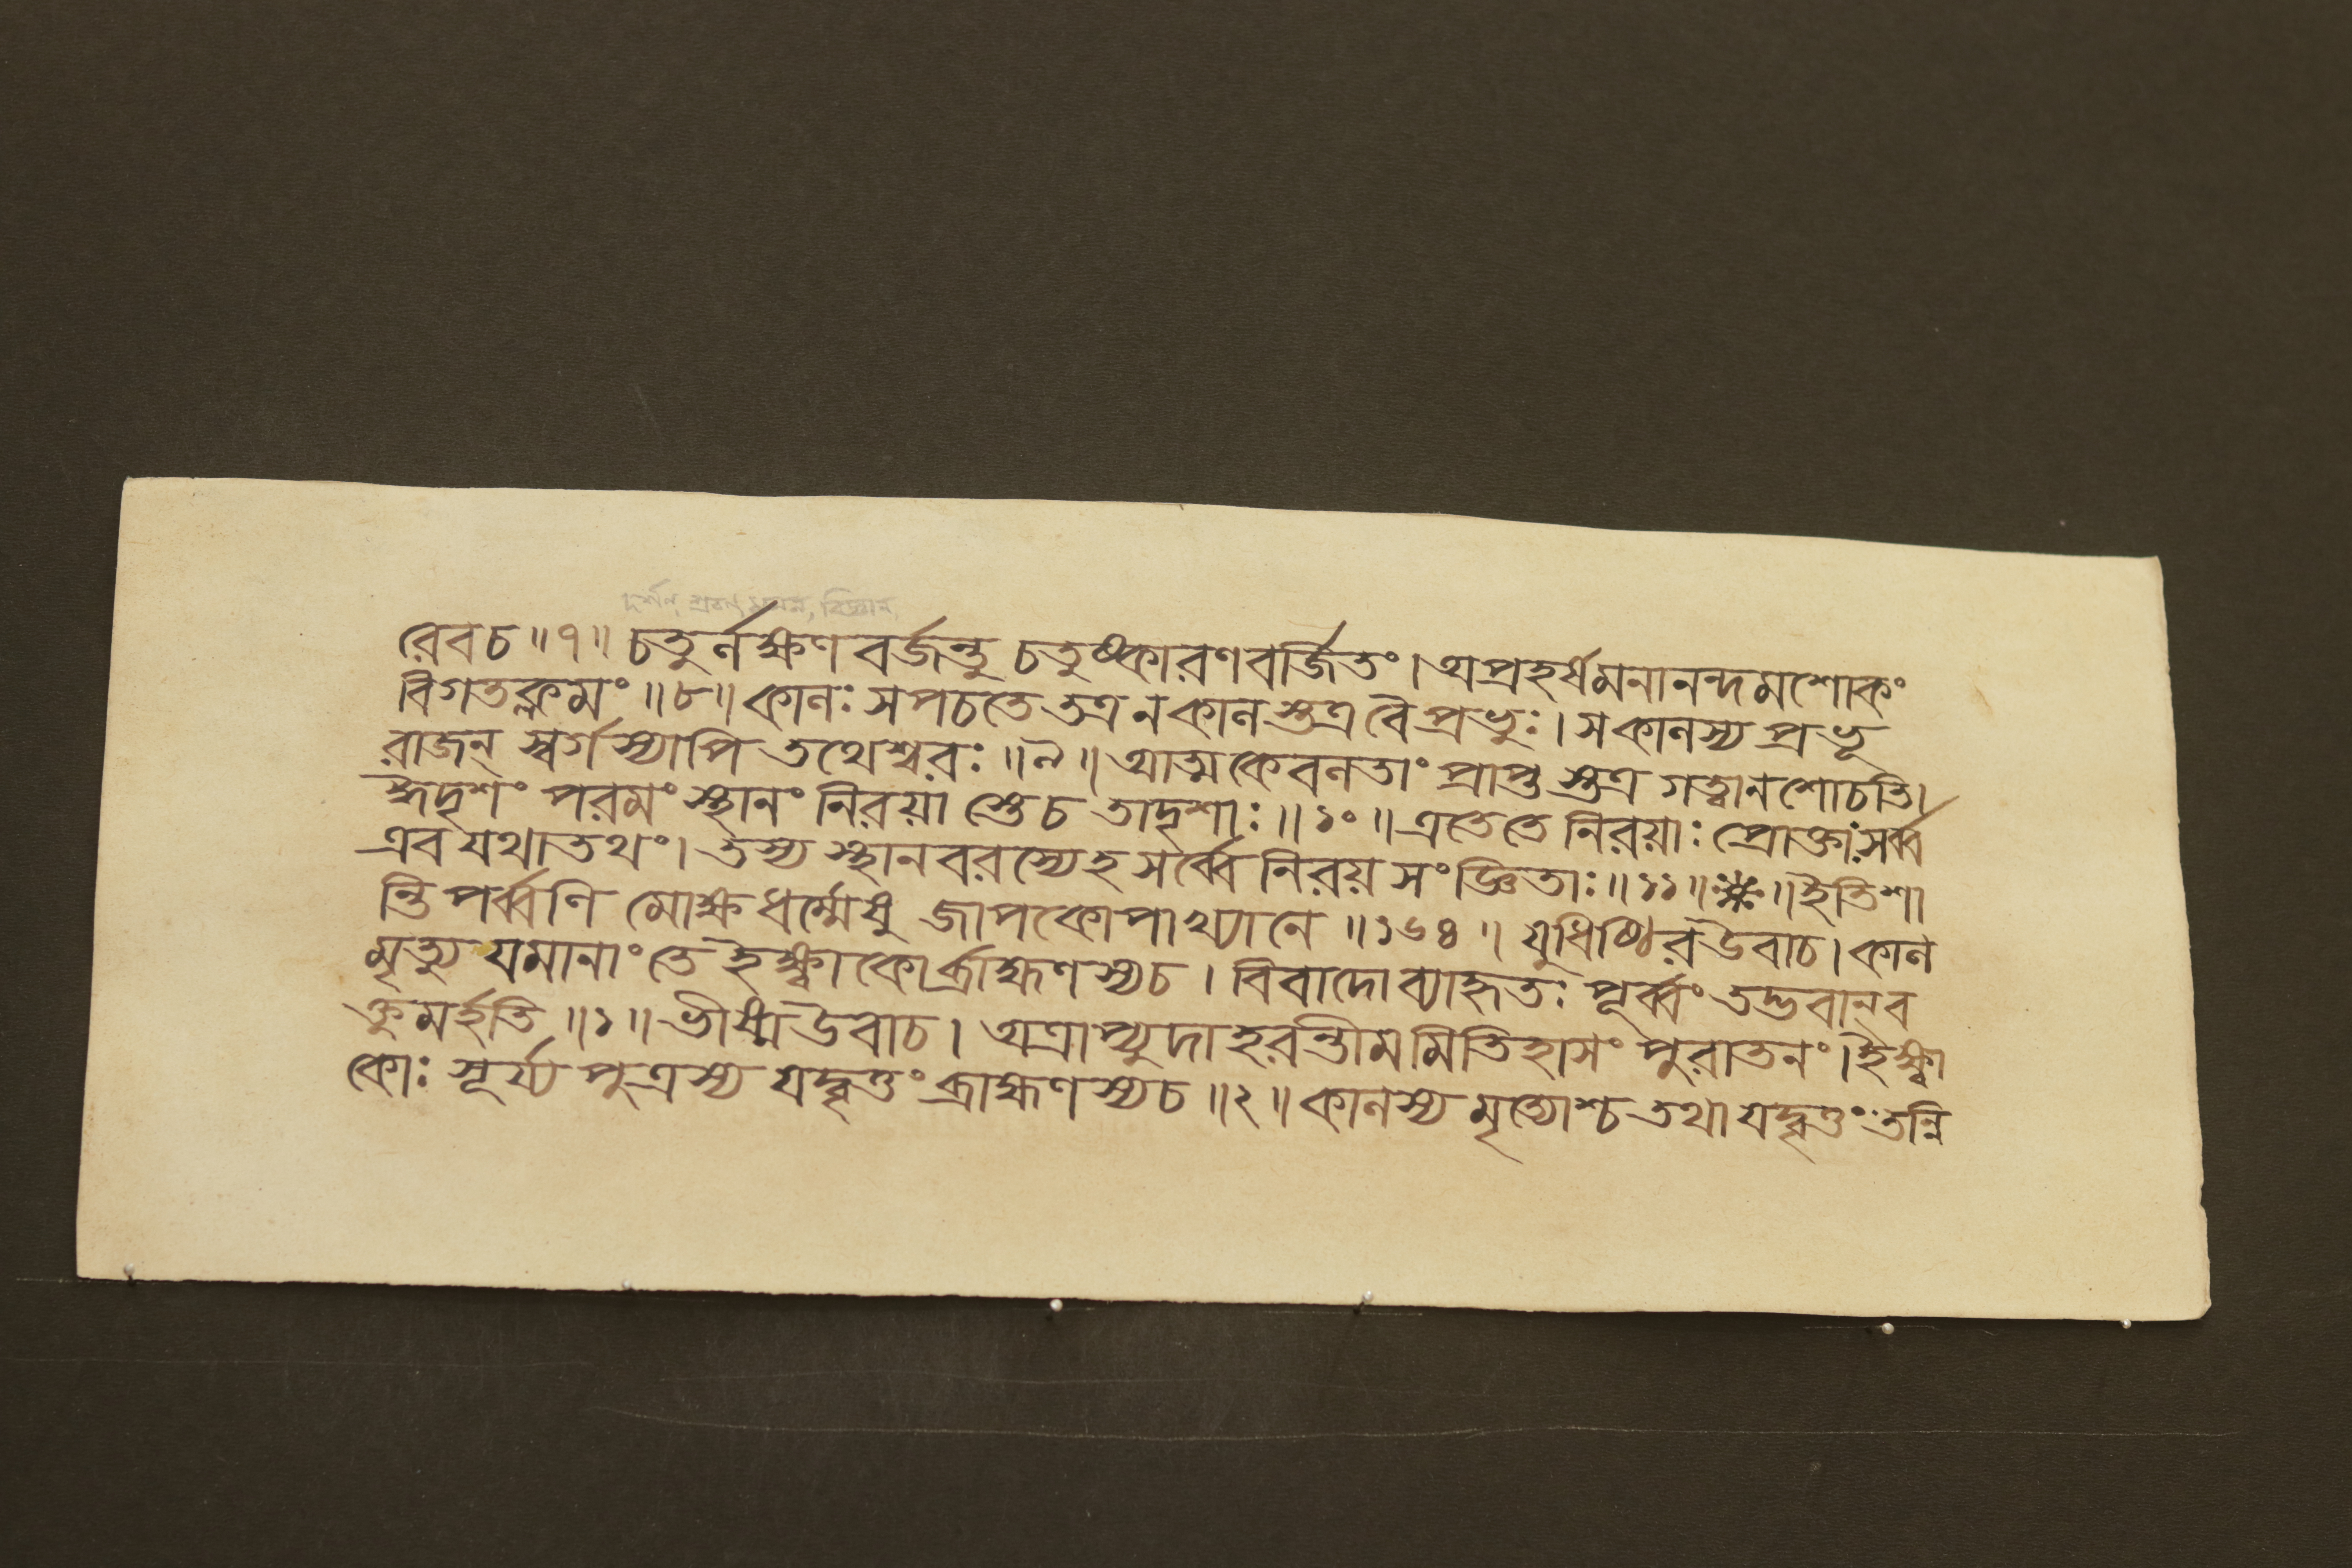 দর্শন, শ্রবণ, মনন, বিজ্ঞান
রেবচ ॥৭॥ চতুর্লক্ষণ বর্জন্তু চতুষ্কারণবর্জিতং। অপ্রহর্ষমনানন্দমশোকং
বিগতক্লমং ॥৮॥ কালঃ সপচতে তত্র ন কালস্তত্র বৈ প্রভুঃ। সকালস্য প্রভূ
রাজন্ স্বর্গস্যাপি তথেশ্বরঃ ॥৯॥ আত্মকেবলতাং প্রাপ্তস্তত্র গত্বা ন শোচতি।
হীদৃশং পরমং স্থানং নিরয়াস্তে চ তাদৃশাঃ ॥১০॥ এতে তে নিরয়াঃ প্রোক্তাঃ সর্ব্ব
এব যথাতথং। তস্য স্থানবরস্যেহ সর্ব্বে নিরয় সংজ্ঞিতাঃ ॥১১॥ঃ※ঃ॥ ইতি শা
ন্তি পর্ব্বণি মোক্ষধর্ম্মেষু জাপকোপাখ্যানে ॥১৬৪॥ যুধিষ্ঠির উবাচ। কাল
মৃত্যু যমানাং তে ইক্ষ্বাকোর্ব্রাহ্মণস্য চ। বিবাদো ব্যাহৃতঃ পূর্ব্বং তদ্ভবান্ ব
ক্তুমর্হতি ॥১॥ ভীষ্ম উবাচ। অত্রাপ্যুদাহরন্তীমমিতিহাসং পুরাতনং। ইক্ষ্বা
কোঃ সূর্য্য পুত্রস্য যদ্বৃত্তং ব্রাহ্মণস্য চ ॥২॥ কালস্য মৃত্যোশ্চ তথা যদ্বৃত্তং তন্নি